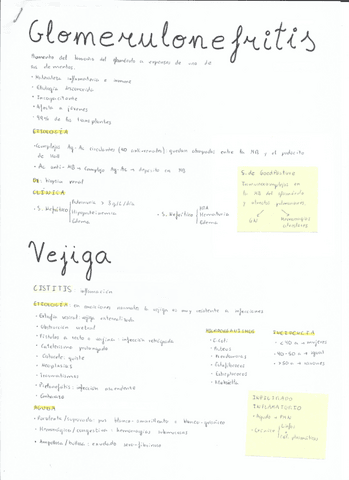 Glomerulonefritis
Aumento del tamaño del glomérulo a expensas de uno de
sus elementos.
• Naturaleza inflamatoria e inmune
• Etiología desconocida
• Incapacitante
• Afecta a jóvenes
• de los transplantes
ETIOLOGÍA
• Complejos Ag-Ac circulantes quedan atrapados entre la MB y el podocito
• Ac anti-MB → Complejo Ag-Ac → depósito en MB
Dx: biopsia renal
CLÍNICA
• S. Nefrótico
Proteinuria > 3g/dl/día
Hipoproteinemia
Edema
• S. Nefrítico
HTA
Hematuria
Edema
S. de Goodpasture
Inmunocomplejos en
la MB del glomérulo
y alveolo pulmonar
GN
Hemorragias
alveolares
Vejiga
CISTITIS: inflamación
ETIOLOGÍA: en condiciones normales la vejiga es muy resistente a infecciones
• Extrofia vesical: vejiga exteriorizada
• Obstrucción uretral
• Fístulas a recto o vagina: infección retrógrada
• Cateterismo prolongado
• Cálculo, quiste
• Neoplasias
• Traumatismos
• Pielonefritis: infección ascendente
• Embarazo
MICROORGANISMOS
• E. coli
• Proteus
• Pseudomonas
• Estafilococos
• Estreptococos
• Klebsiella
INCIDENCIA
• < 50 a → mujeres
• 40-50 a → igual
• > 50 a → varones
AGUDA
• Exudativa/supurada: pus blanco-amarillento o blanco-grisáceo
• Hemorrágica/congestiva: hemorragias submucosas
• exudado seroso-fibrinoso
INFILTRADO
INFLAMATORIO
• Aguda → PMN
• Crónica
Linfos
cél. plasmáticas